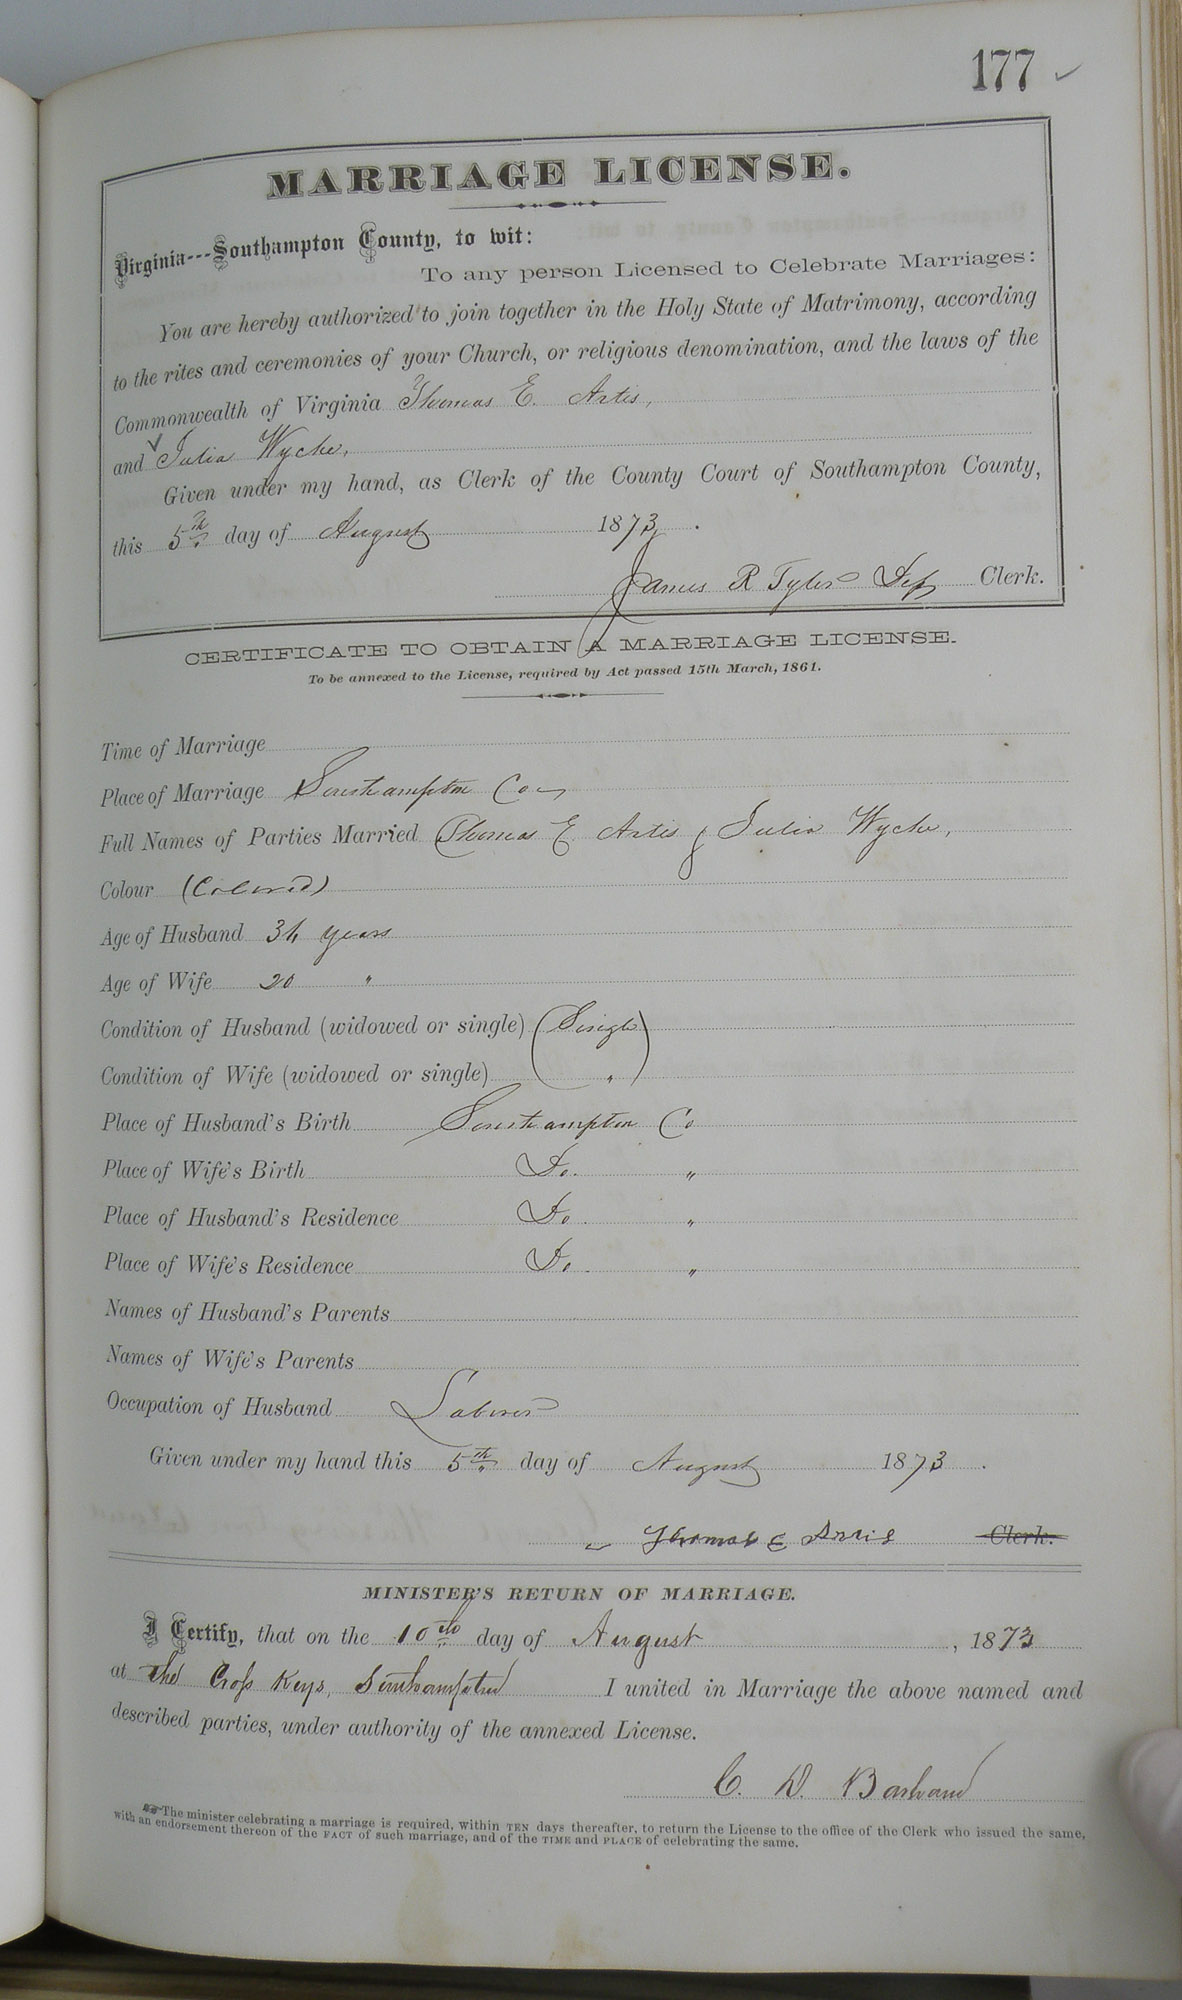 177 ✓
MARRIAGE LICENSE.
Virginia---Southampton County, to wit:
To any person Licensed to Celebrate Marriages:
You are hereby authorized to join together in the Holy State of Matrimony, according
to the rites and ceremonies of your Church, or religious denomination, and the laws of the
Commonwealth of Virginia Thomas E. Artis,
and Julia Wyche,
Given under my hand, as Clerk of the County Court of Southampton County,
this 5th day of August 1873.
James R Tyler Dep Clerk.
CERTIFICATE TO OBTAIN A MARRIAGE LICENSE.
To be annexed to the License, required by Act passed 15th March, 1861.
Time of Marriage
Place of Marriage Southampton Co
Full Names of Parties Married Thomas E Artis & Julia Wyche,
Colour (Colored)
Age of Husband years
Age of Wife 20 "
Condition of Husband (widowed or single) (Single)
Condition of Wife (widowed or single) "
Place of Husband's Birth Southampton Co
Place of Wife's Birth Do. "
Place of Husband's Residence Do. "
Place of Wife's Residence Do. "
Names of Husband's Parents
Names of Wife's Parents
Occupation of Husband Laborer
Given under my hand this 5th day of August 1873.
Thomas E Artis Clerk.
MINISTER'S RETURN OF MARRIAGE.
I Certify, that on the 10th day of August, 1873
at the Cross Keys, Southampton I united in Marriage the above named and
described parties, under authority of the annexed License.
C. D.
The minister celebrating a marriage is required, within TEN days thereafter, to return the License to the office of the Clerk who issued the same,
with an endorsement thereon of the FACT of such marriage, and of the TIME and PLACE of celebrating the same.